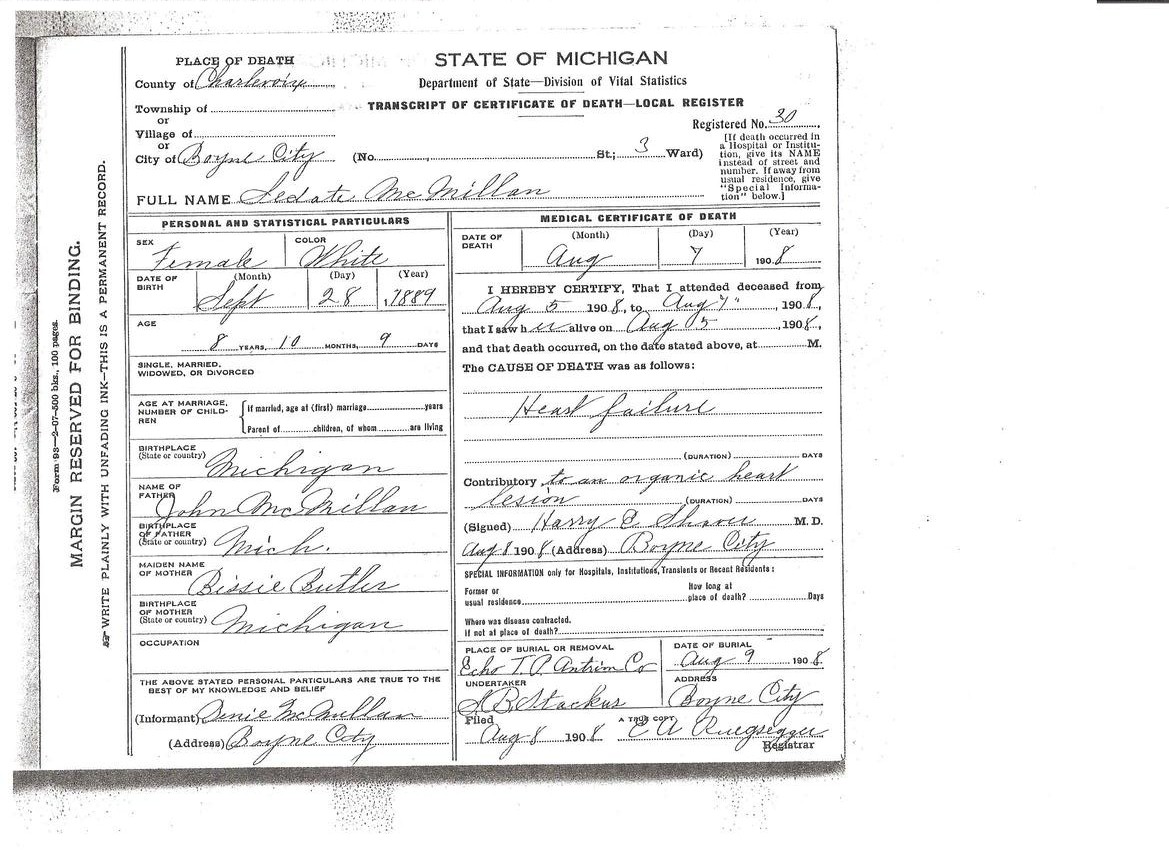 Form 93—2-07-500 bks., 100 pages.
MARGIN RESERVED FOR BINDING.
WRITE PLAINLY WITH UNFADING INK—THIS IS A PERMANENT RECORD.
STATE OF MICHIGAN
Department of State—Division of Vital Statistics
TRANSCRIPT OF CERTIFICATE OF DEATH—LOCAL REGISTER
PLACE OF DEATH
County of Charlevoix
Township of
or
Village of
or
City of Boyne City (No. , St; 3 Ward)
Registered No. 30
[If death occurred in
a Hospital or Institu-
tion, give its NAME
instead of street and
number. If away from
usual residence, give
"Special Informa-
tion" below.]
FULL NAME Sedate McMillan
PERSONAL AND STATISTICAL PARTICULARS
SEX Female
COLOR White
DATE OF BIRTH
(Month) (Day) (Year)
Sept 28, 1889
AGE
8 YEARS, 10 MONTHS, 9 DAYS
SINGLE, MARRIED,
WIDOWED, OR DIVORCED
AGE AT MARRIAGE,
NUMBER OF CHILD-
REN
If married, age at (first) marriage years
Parent of children, of whom are living
BIRTHPLACE
(State or country) Michigan
NAME OF
FATHER John McMillan
BIRTHPLACE
OF FATHER
(State or country) Mich.
MAIDEN NAME
OF MOTHER Bissie Butler
BIRTHPLACE
OF MOTHER
(State or country) Michigan
OCCUPATION
THE ABOVE STATED PERSONAL PARTICULARS ARE TRUE TO THE
BEST OF MY KNOWLEDGE AND BELIEF
(Informant) McMillan
(Address) Boyne City
MEDICAL CERTIFICATE OF DEATH
DATE OF
DEATH
(Month) (Day) (Year)
Aug 7 1908
I HEREBY CERTIFY, That I attended deceased from
Aug 5 1908, to Aug 7", 1908,
that I saw her alive on Aug 5, 1908,
and that death occurred, on the date stated above, at M.
The CAUSE OF DEATH was as follows:
Heart failure
(DURATION) DAYS
Contributory to an organic heart
lesion (DURATION) DAYS
(Signed) Harry E Shaver M.D.
Aug 8 1908 (Address) Boyne City
SPECIAL INFORMATION only for Hospitals, Institutions, Transients or Recent Residents:
Former or
usual residence
How long at
place of death? Days
Where was disease contracted,
if not at place of death?
PLACE OF BURIAL OR REMOVAL
Echo T.P. Antrim Co
DATE OF BURIAL
Aug 9 1908
UNDERTAKER
S B Stackus
ADDRESS
Boyne City
Filed
Aug 8 1908
A TRUE COPY
E A Ruegsegger
Registrar